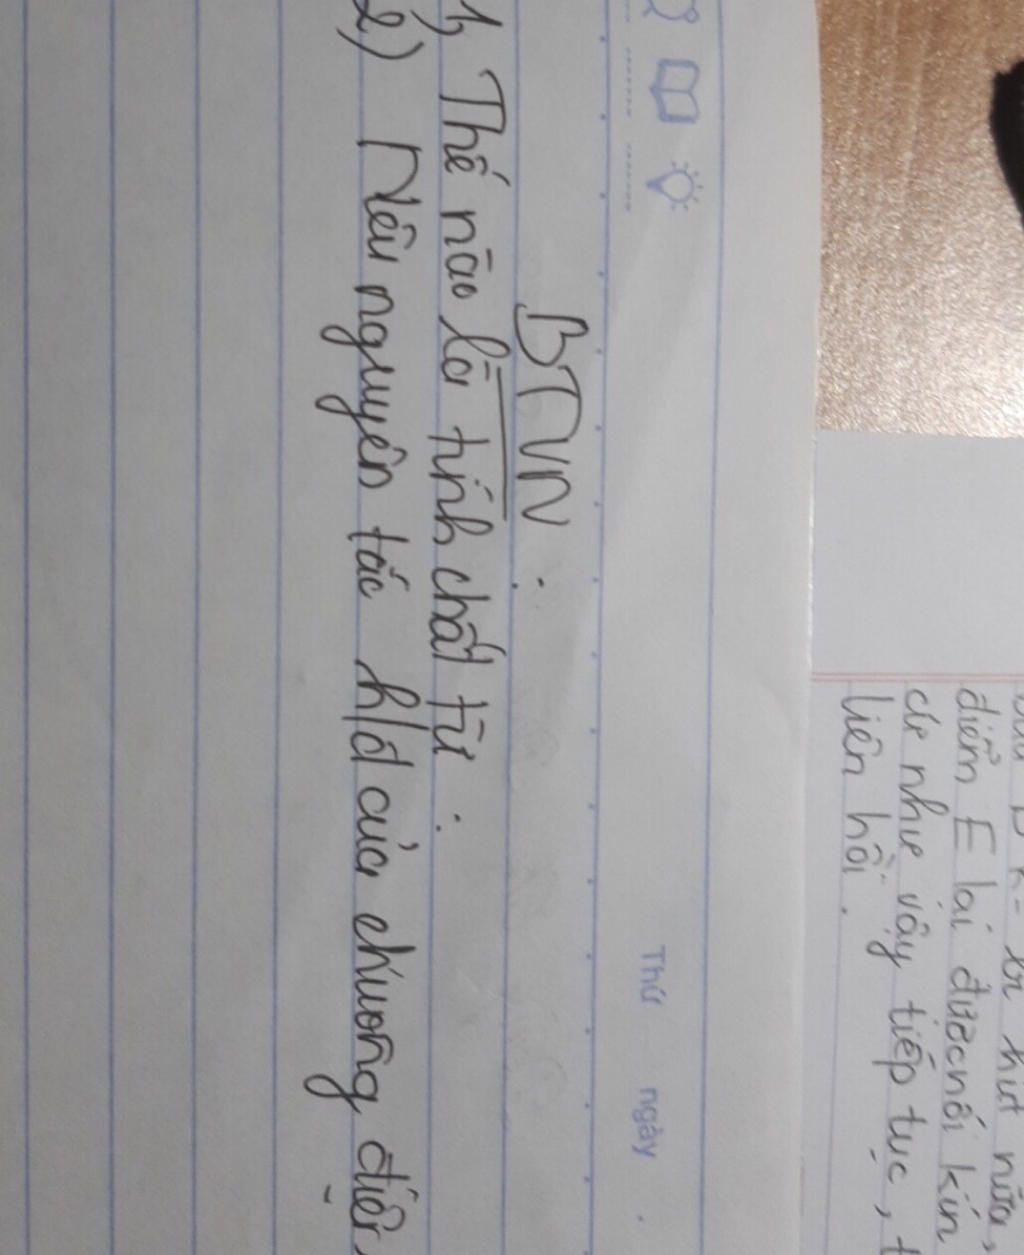 Thứ ngày
BTVN :
1, Thế nào là tính chất từ :
2) Nêu nguyên tắc h/đ của chuông điện
hút nữa,
điểm E lại được nối kín
cứ như vậy tiếp tục,
liên hồi.